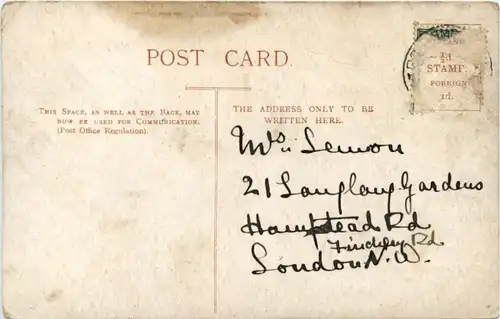 POST CARD.
INLAND
½d.
STAMP.
FOREIGN
1d.
THIS SPACE, AS WELL AS THE BACK, MAY
NOW BE USED FOR COMMUNICATION.
(Post Office Regulation).
THE ADDRESS ONLY TO BE
WRITTEN HERE.
Lemon
21 Gardens
Hampstead Rd
Finchley Rd
London N.W.